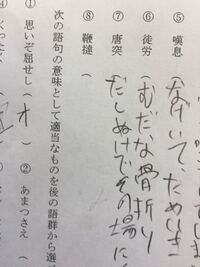 ⑤ 嘆息 (なげいて、ためいき
⑥ 徒労 (むだな骨折り
⑦ 唐突 (だしぬけでその場に
⑧ 鞭撻 (
次の語句の意味として適当なものを後の語群から選
① 思いぞ屈せし (オ) ② あまつさえ